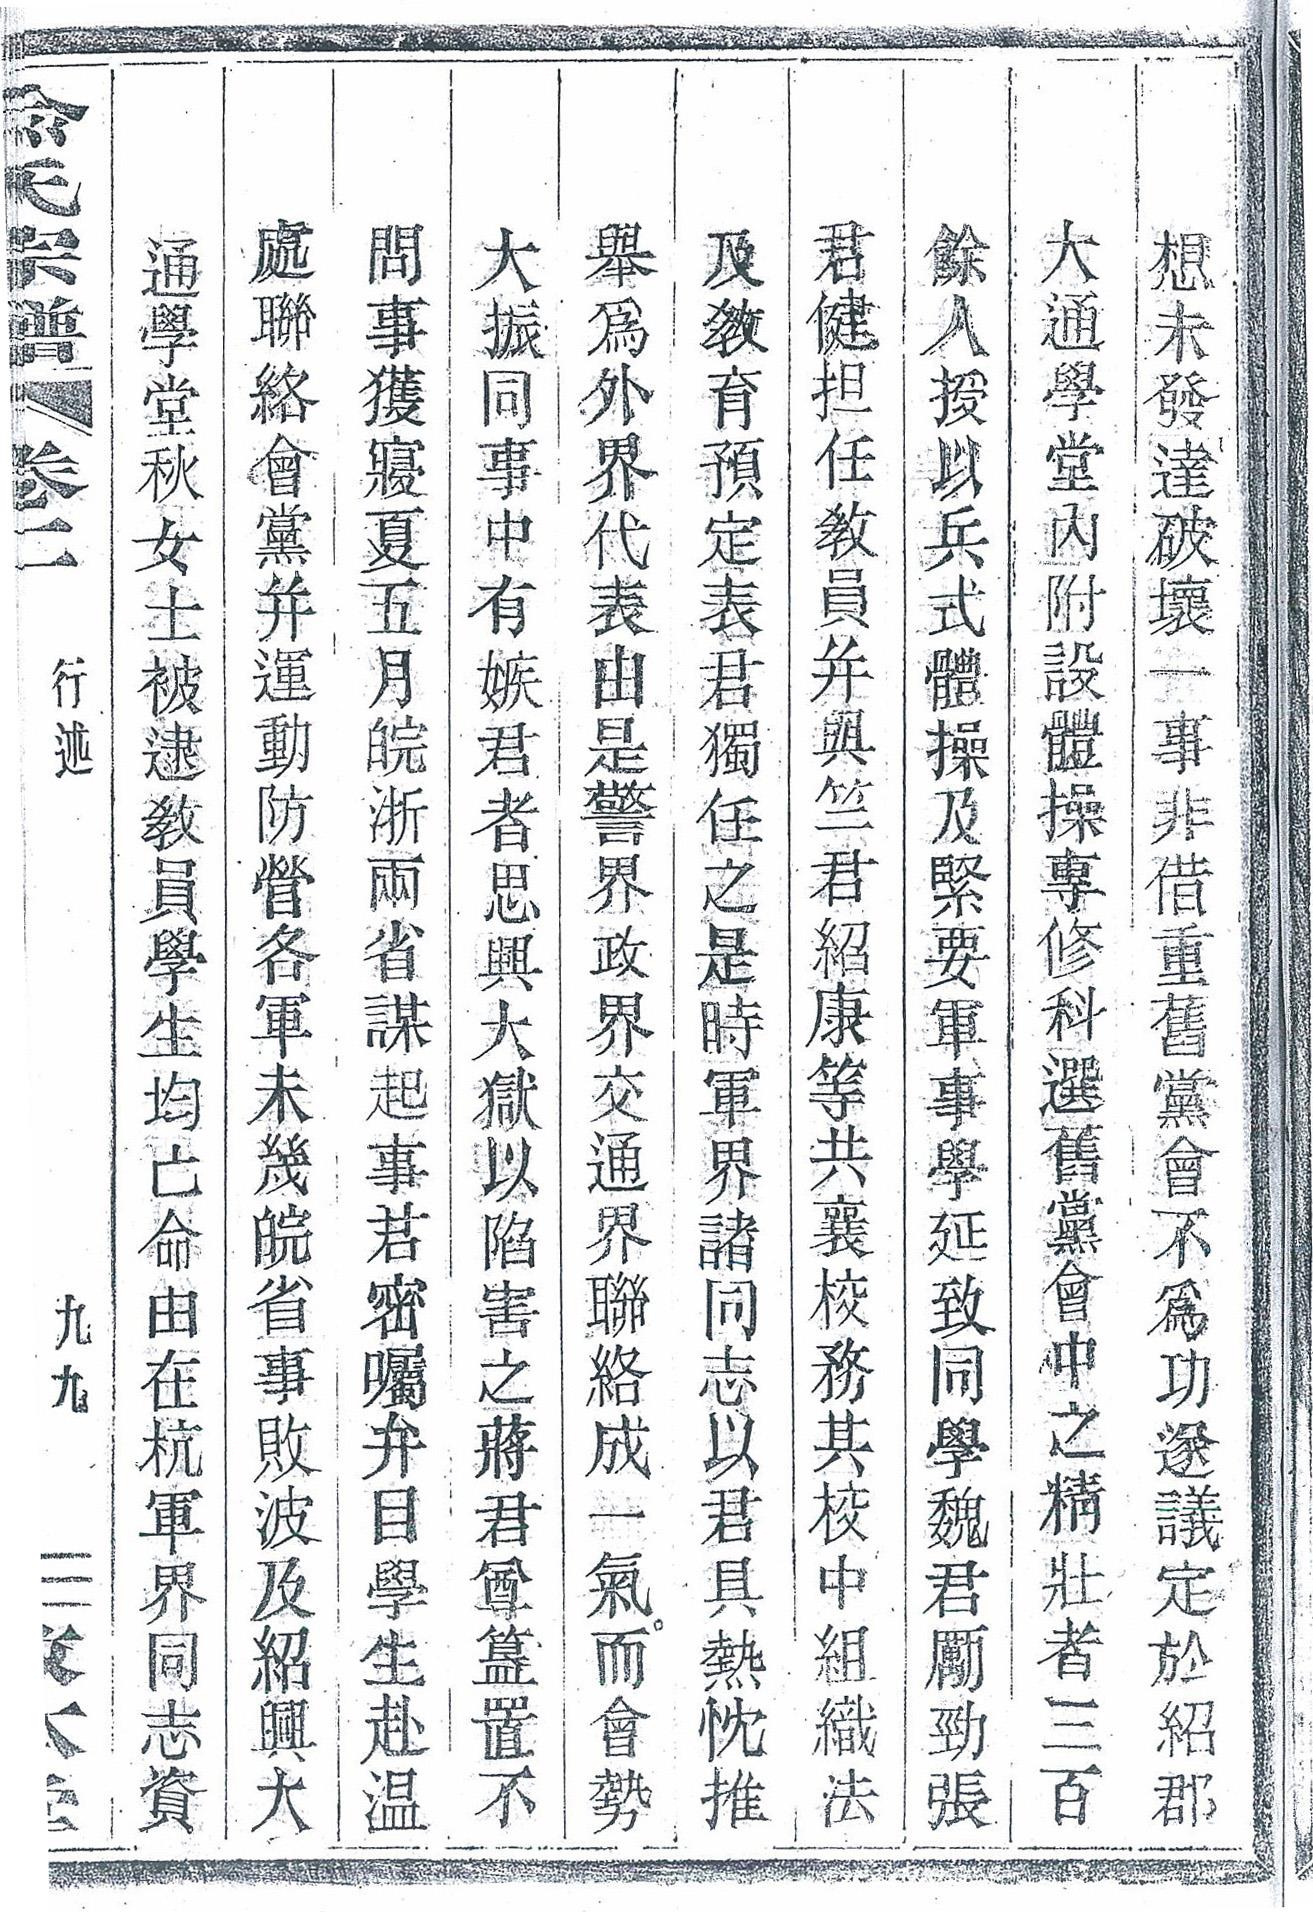 想未發達破壞一事非借重舊黨會不爲功遂議定於紹郡
大通學堂內附設體操專修科選舊黨會中之精壯者三百
餘人授以兵式體操及緊要軍事學延致同學魏君勵勁張
君健担任教員并與竺君紹康等共襄校務其校中組織法
及教育預定表君獨任之是時軍界諸同志以君具熱忱推
舉爲外界代表由是警界政界交通界聯絡成一氣。而會勢
大振同事中有嫉君者思興大獄以陷害之蔣君尊簋置不
問事獲寢夏五月皖浙兩省謀起事君密囑弁目學生赴温
處聯絡會黨并運動防營各軍未幾皖省事敗波及紹興大
通學堂秋女士被逮教員學生均亡命由在杭軍界同志資
氏宗譜 卷二 行述 九九